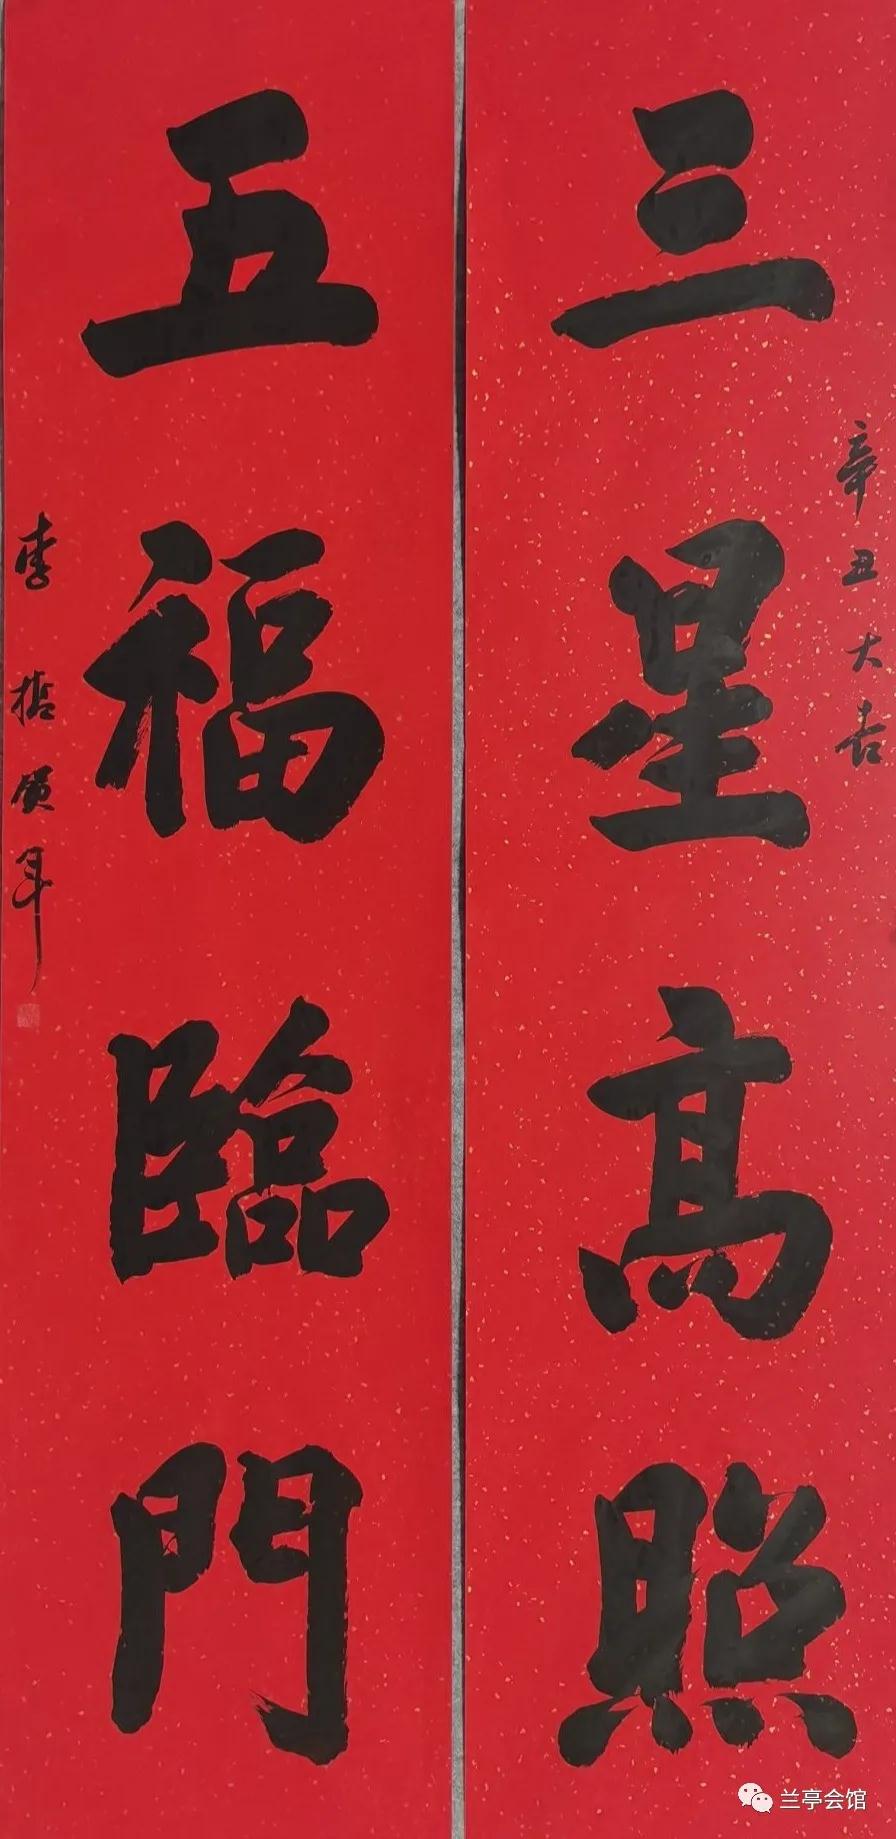 三星高照
辛丑大吉
五福臨門
李哲贺年
兰亭会馆